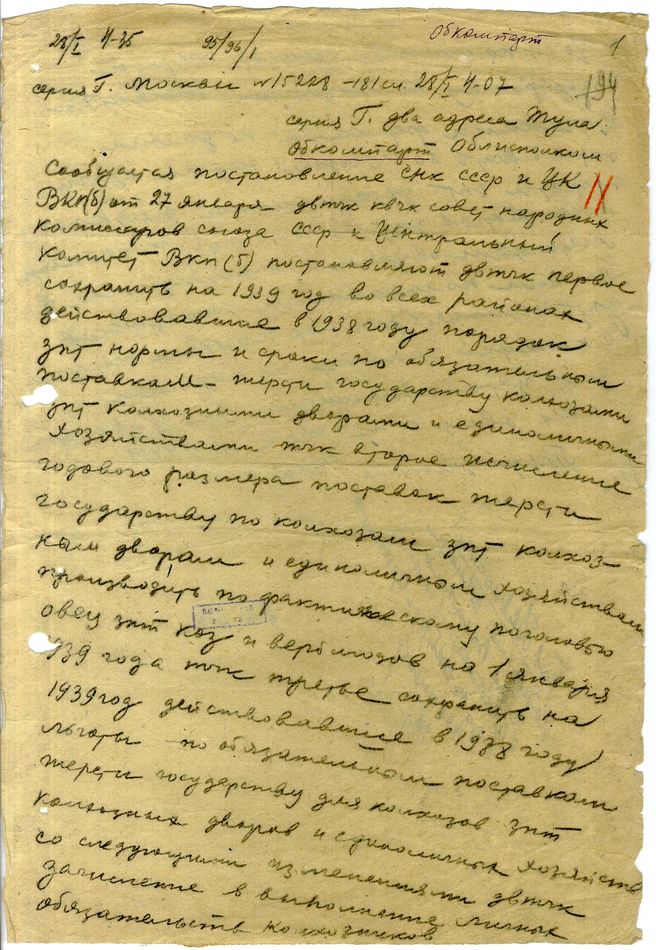 28/I 4-35 95/96/1 Обкомпарт 1
серия Г. Москвы N 15228 - 181 сл. 28/I 4-07 194
серия Г. два адреса Тула
Обкомпарт Облисполком
Сообщается постановление СНК СССР и ЦК
ВКП(б) от 27 января двтчк квчк совет народных
комиссаров союза ССР и Центральный
комитет ВКП(б) постановляют двтчк первое
сохранить на 1939 год во всех районах
действовавшие в 1938 году порядок
зпт нормы и сроки по обязательным
поставкам шерсти государству колхозами
зпт колхозными дворами и единоличными
хозяйствами тчк второе исчисление
годового размера поставок шерсти
государству по колхозам зпт колхоз-
ным дворам и единоличным хозяйствам
производить по фактическому поголовью
овец зпт коз и верблюдов на 1 января
939 года тчк третье сохранить на
1939 год действовавшие в 1938 году
льготы по обязательным поставкам
шерсти государству для колхозов зпт
колхозных дворов и единоличных хозяйств
со следующими изменениями двтчк
зачисление в выполнение личных
обязательств колхозников